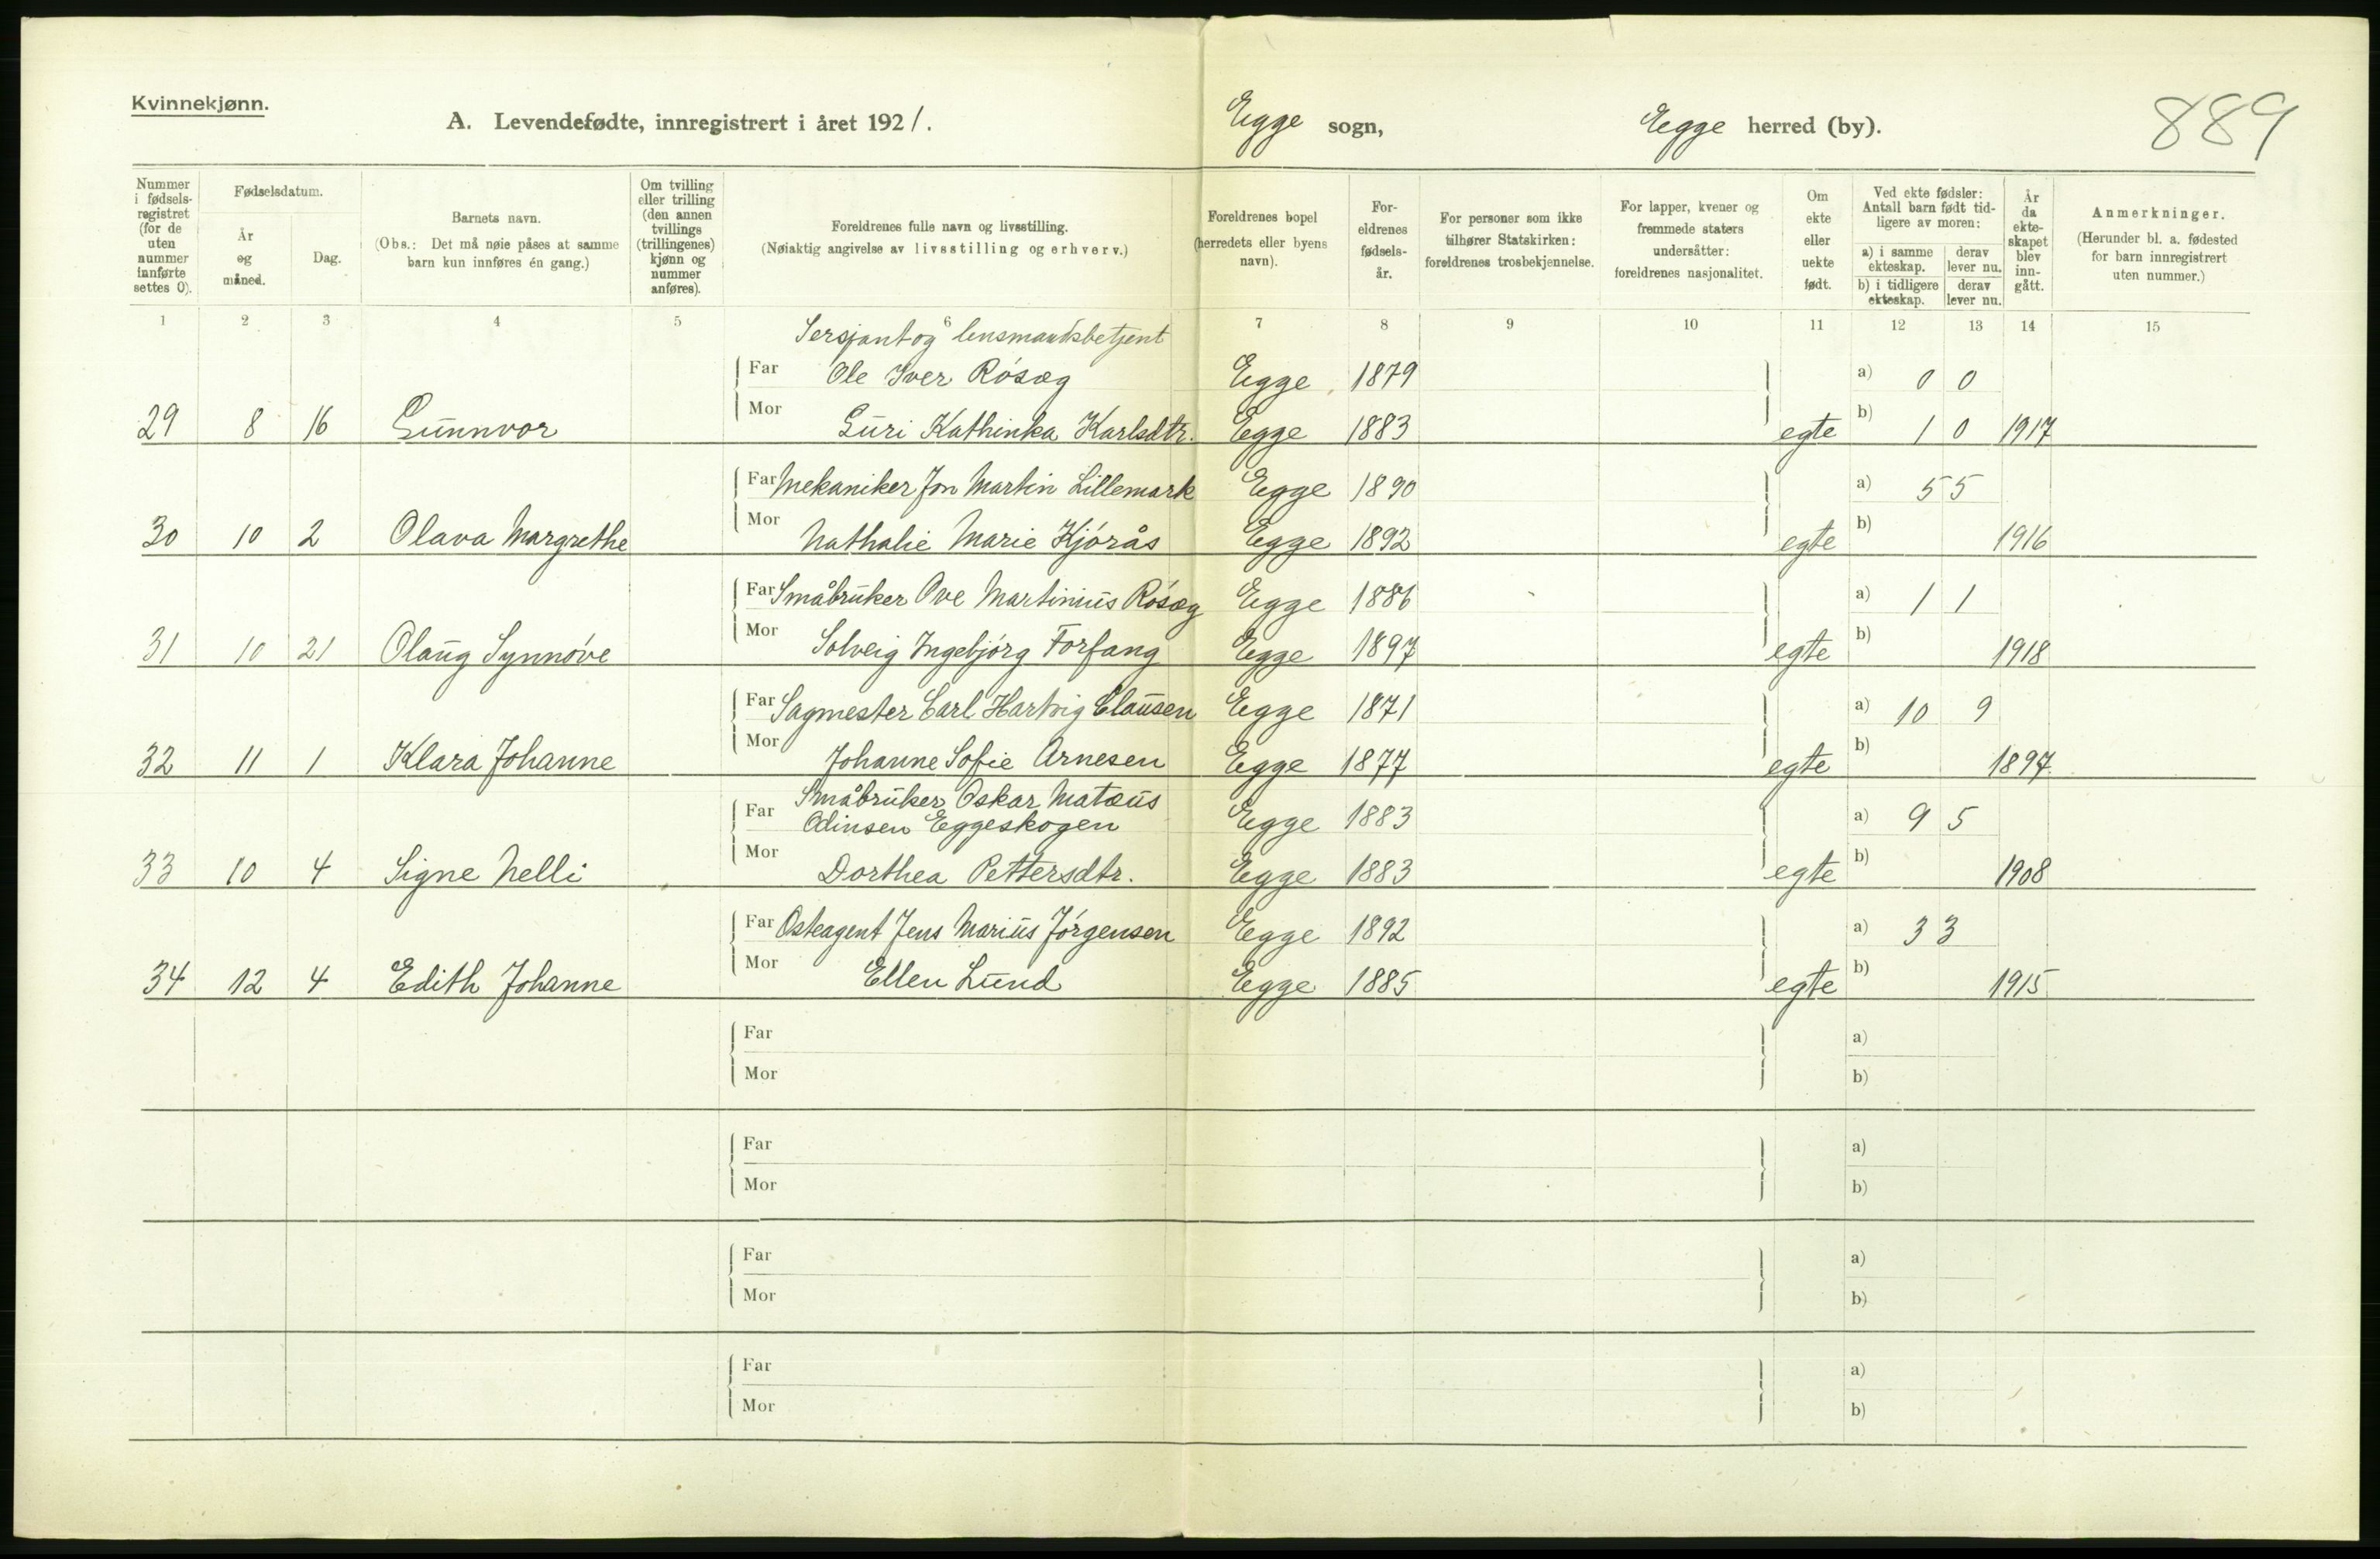 Kvinnekjønn.
A. Levendefødte, innregistrert i året 1921. Egge sogn, Egge herred (by). 889
Nummer i fødsels-registret (for de uten nummer innførte settes 0).
Fødselsdatum.
År og måned.
Dag.
Barnets navn.
(Obs.: Det må nøie påses at samme barn kun innføres én gang.)
Om tvilling eller trilling (den annen tvillings (trillingenes) kjønn og nummer anføres).
Foreldrenes fulle navn og livsstilling.
(Nøiaktig angivelse av livsstilling og erhverv.)
Foreldrenes bopel (herredets eller byens navn).
For-eldrenes fødsels-år.
For personer som ikke tilhører Statskirken: foreldrenes trosbekjennelse.
For lapper, kvener og fremmede staters undersåtter: foreldrenes nasjonalitet.
Om ekte eller uekte født.
Ved ekte fødsler: Antall barn født tid-ligere av moren:
a) i samme ekteskap.
derav lever nu.
b) i tidligere ekteskap.
derav lever nu.
År da ekte-skapet blev inn-gått.
Anmerkninger.
(Herunder bl. a. fødested for barn innregistrert uten nummer.)
1 2 3 4 5 6 7 8 9 10 11 12 13 14 15
Sersjant og lensmandsbetjent
Far Ole Iver Rósæg Egge 1879 a) 0 0
29 8 16 Gunnvor Mor Guri Kathinka Karlsdtr. Egge 1883 egte b) 1 0 1917
Far Mekaniker Jon Martin Lillemark Egge 1890 a) 5 5
30 10 2 Olava Margrethe Mor Nathalie Marie Kjórås Egge 1892 egte b) 1916
Far Småbruker Ove Martinius Rósæg Egge 1886 a) 1 1
31 10 21 Olaug Synnóve Mor Solveig Ingebjórg Forfang Egge 1897 egte b) 1918
Far Sagmester Carl Hartvig Clausen Egge 1871 a) 10 9
32 11 1 Klara Johanne Mor Johanne Sofie Arnesen Egge 1877 egte b) 1897
Småbruker Oskar Matæus
Far Odinsen Eggeskogen Egge 1883 a) 9 5
33 10 4 Signe Nelli Mor Dorthea Pettersdtr. Egge 1883 egte b) 1908
Far Osteagent Jens Marius Jórgensen Egge 1892 a) 3 3
34 12 4 Edith Johanne Mor Ellen Lund Egge 1885 egte b) 1915
Far a)
Mor b)
Far a)
Mor b)
Far a)
Mor b)
Far a)
Mor b)